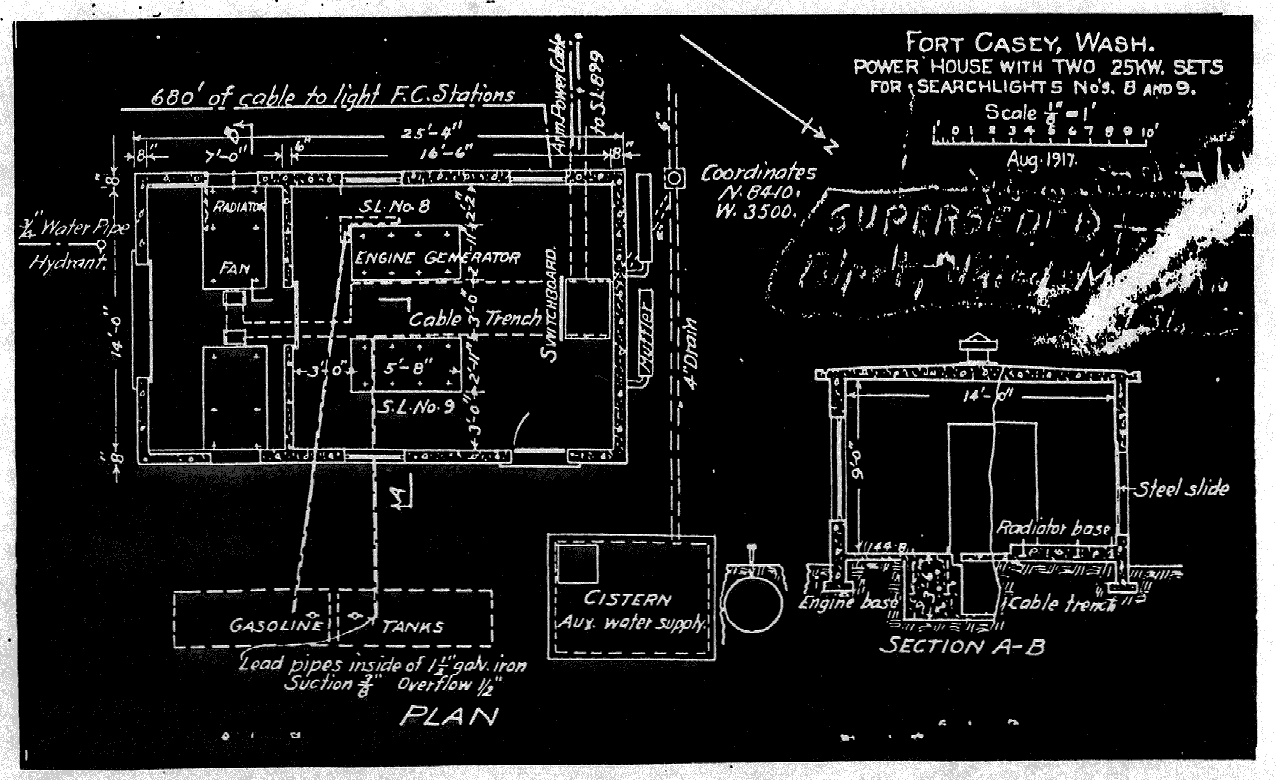 FORT CASEY, WASH.
POWER HOUSE WITH TWO 25KW. SETS
FOR SEARCHLIGHTS No's. 8 AND 9.
Scale 1/8" = 1'
1' 0 1 2 3 4 5 6 7 8 9 10'
Aug. 1917.
SUPERSEDED
680' of cable to light F.C. Stations
Power Cable
to S.L. 8&9
N
Coordinates
N. 8410.
W. 3500.
25'-4"
8"
7'-0"
6"
16'-6"
8"
8"
14'-0"
8"
3/4" Water Pipe
Hydrant.
RADIATOR
FAN
S.L. No. 8
ENGINE GENERATOR
2'-2"
Cable Trench
3'-0"
SWITCHBOARD.
Muffler
3'-0"
5'-8"
2'-11"
S.L. No. 9
3'-0"
6"
4" Drain
A
GASOLINE TANKS
Lead pipes inside of 1 1/2" galv. iron
Suction 3/8" Overflow 1/2"
PLAN
CISTERN
Aux. water supply.
14'-0"
9'-0"
Steel slide
Radiator base
144.8
Engine base
Cable trench
SECTION A-B